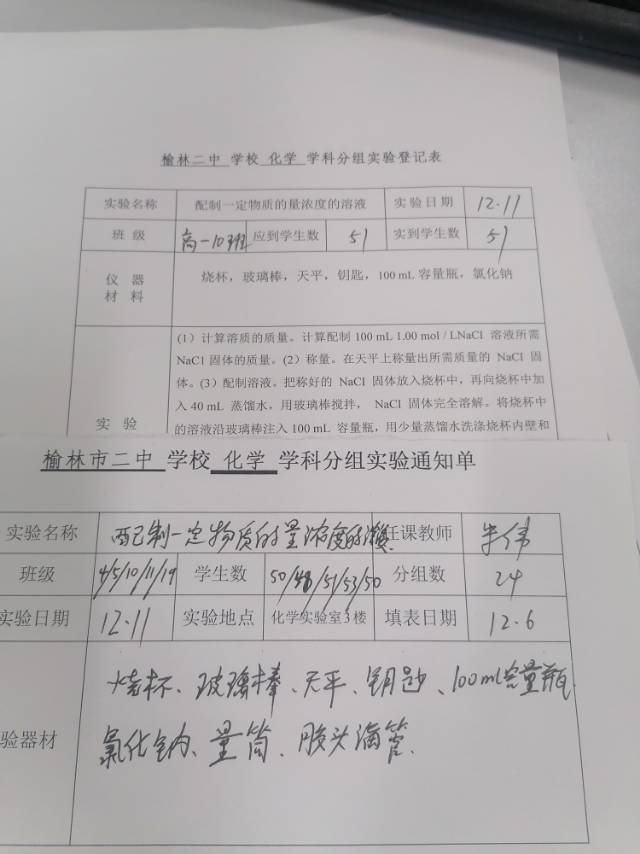 榆林二中 学校 化学 学科分组实验登记表
实验名称 配制一定物质的量浓度的溶液 实验日期 12.11
班 级 高一10班 应到学生数 51 实到学生数 51
仪 器
材 料
烧杯，玻璃棒，天平，钥匙，100 mL 容量瓶，氯化钠
(1) 计算溶质的质量。计算配制 100 mL 1.00 mol / LNaCl 溶液所需
NaC1 固体的质量。(2) 称量。在天平上称量出所需质量的 NaCl 固
体。(3) 配制溶液。把称好的 NaCl 固体放入烧杯中，再向烧杯中加
入 40 mL 蒸馏水，用玻璃棒搅拌， NaCl 固体完全溶解。将烧杯中
实 验
的溶液沿玻璃棒注入 100 mL 容量瓶，用少量蒸馏水洗涤烧杯内壁和
榆林市二中 学校 化学 学科分组实验通知单
实验名称 配制一定物质的量浓度的溶液 任课教师 伟
班级 4/5/10/11/19 学生数 50/48/51/53/50 分组数 24
实验日期 12.11 实验地点 化学实验室3楼 填表日期 12.6
验器材
烧杯、玻璃棒、天平、钥匙、100ml容量瓶
氯化钠、量筒、胶头滴管.